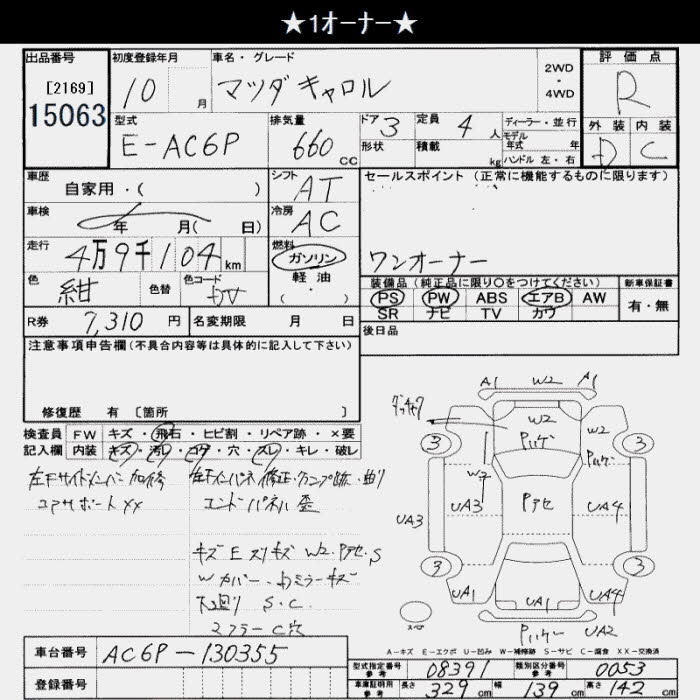 ★1オーナー★
出品番号 初度登録年月 車名・グレード 評価点
[2169] 10 月 マツダ キャロル 2WD・4WD R
15063 外装 内装
型式 排気量 ドア 3 定員 4 人 ディーラー・並行
E-AC6P 660 CC 形状 積載 kg モデル年式 年 D C
ハンドル 左・右
車歴 シフト セールスポイント（正常に機能するものに限ります）
自家用・( ) AT
車検 冷房
年 月( 日) AC
走行 燃料
4万9千104 km ガソリン ワンオーナー
色 色替 色コード 軽油 装備品（純正品に限り○をつけてください） 新車保証書
紺 ( ) PS PW ABS エアB AW 有・無
SR ナビ TV カワ
R券 7,310 円 名変期限 月 日 後日品
注意事項申告欄（不具合内容等は具体的に記入して下さい）
修復歴 有 [箇所 ]
検査員 FW キズ・飛石・ヒビ割・リペア跡・×要
記入欄 内装 キズ・汚レ・コゲ・穴・スレ・キレ・破レ
左Fサイドメンバー
コアサポートXX
エンドパネル 歪
キズ E スリキズ W2・Pアセ・S
W カバー・
下廻り S.C
マフラー C穴
A1 W2 A1
W2 W2
3 3
UA3 UA3 Pアセ UA4
3 3
UA1 UA1 UA4
UA2
スペア
A-キズ E-エクボ U-凹み W-補修跡 S-サビ C-腐食 XX-交換済
車台番号 AC6P-130355
型式指定番号 参考 08391 類別区分番号 参考 0053
登録番号
車庫証明用 参考 長さ 329 cm 幅 139 cm 高さ 142 cm